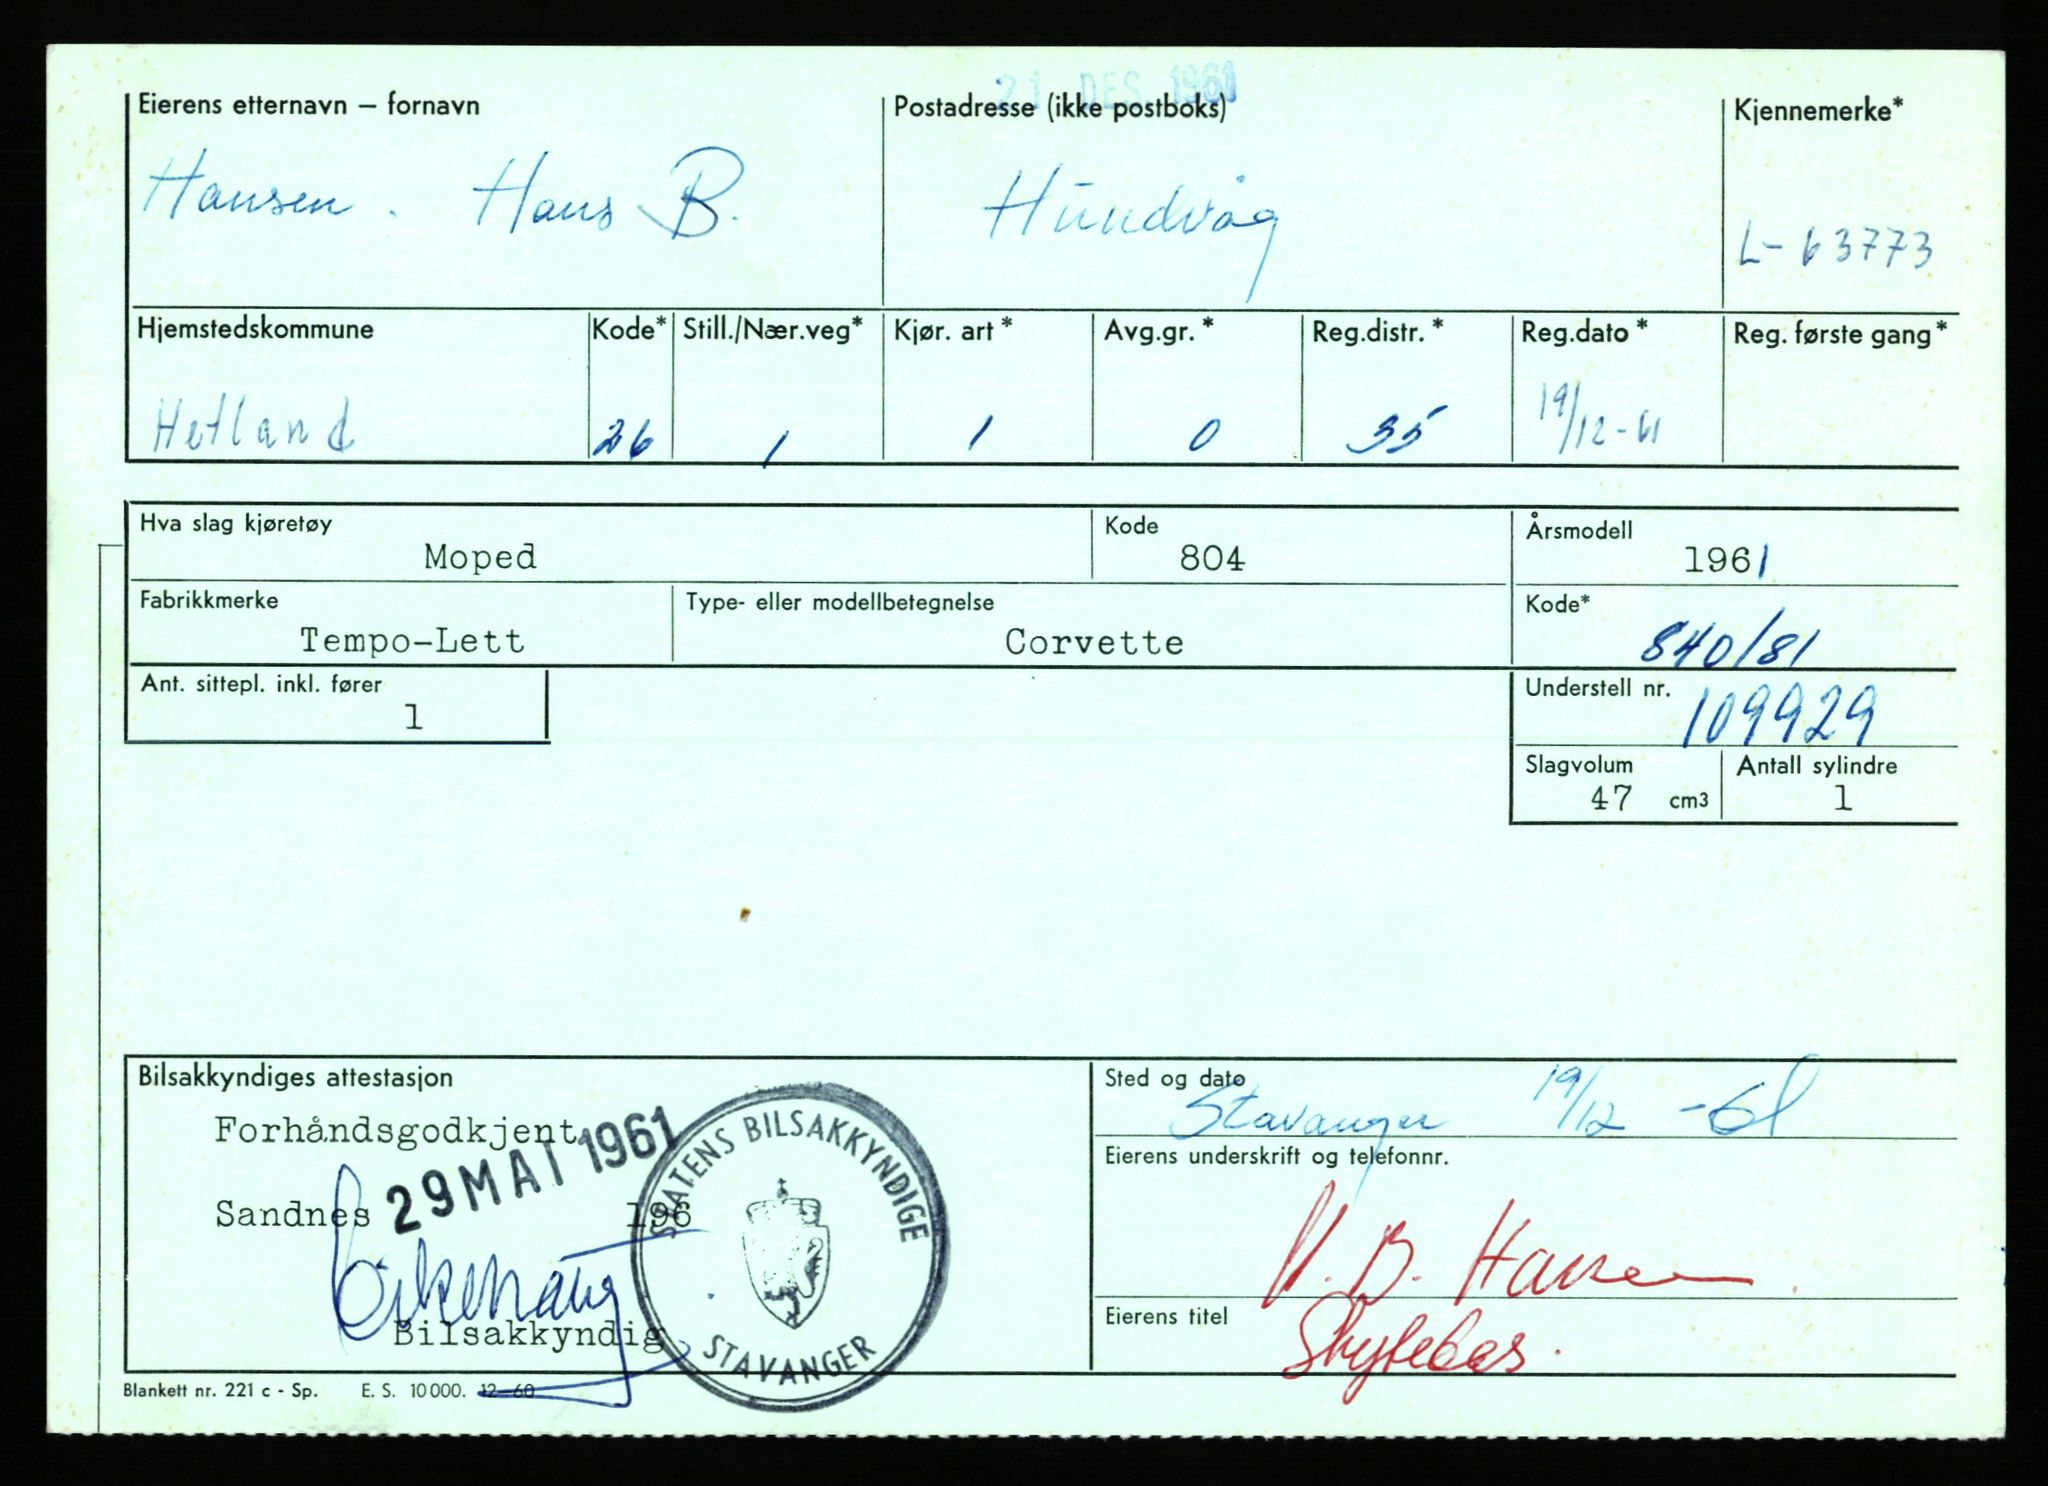 21 DES 1961
Eierens etternavn – fornavn
Postadresse (ikke postboks)
Kjennemerke*
Hansen. Hans B.
Hundvåg
L-63773
Hjemstedskommune
Kode*
Still./Nær.veg*
Kjør. art *
Avg.gr. *
Reg.distr. *
Reg.dato *
Reg. første gang *
Hetland
26
1
1
0
35
19/12-61
Hva slag kjøretøy
Moped
Kode
804
Årsmodell
1961
Fabrikkmerke
Tempo-Lett
Type- eller modellbetegnelse
Corvette
Kode*
840/81
Ant. sittepl. inkl. fører
1
Understell nr.
109929
Slagvolum
47 cm3
Antall sylindre
1
Bilsakkyndiges attestasjon
Forhåndsgodkjent
29 MAI 1961
Sandnes 196
Bilsakkyndig
STATENS BILSAKKYNDIGE
STAVANGER
Sted og dato
Stavanger 19/12 -61
Eierens underskrift og telefonnr.
H. B. Hansen
Eierens titel
Blankett nr. 221 c - Sp. E. S. 10 000. 12-60